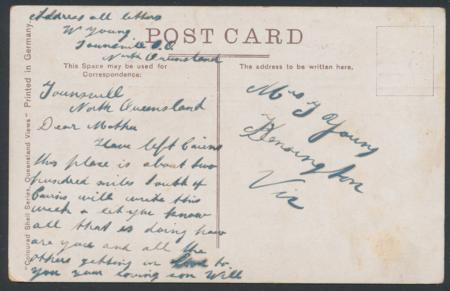 Address all letters
W Young
Townsvill P.O
North Queensland
POST CARD
This Space may be used for
Correspondence:
The address to be written here,
"Coloured Shell Series, Queensland Views" Printed in Germany.
Townsvill
North Queensland
Dear Mother
Have left Cairns
this place is about two
hundred miles South of
Cairns will write this
week & let you know
all that is doing how
are you and all the
others getting on love to
you your loving son Will
Mrs J Young
Kensington
Vic